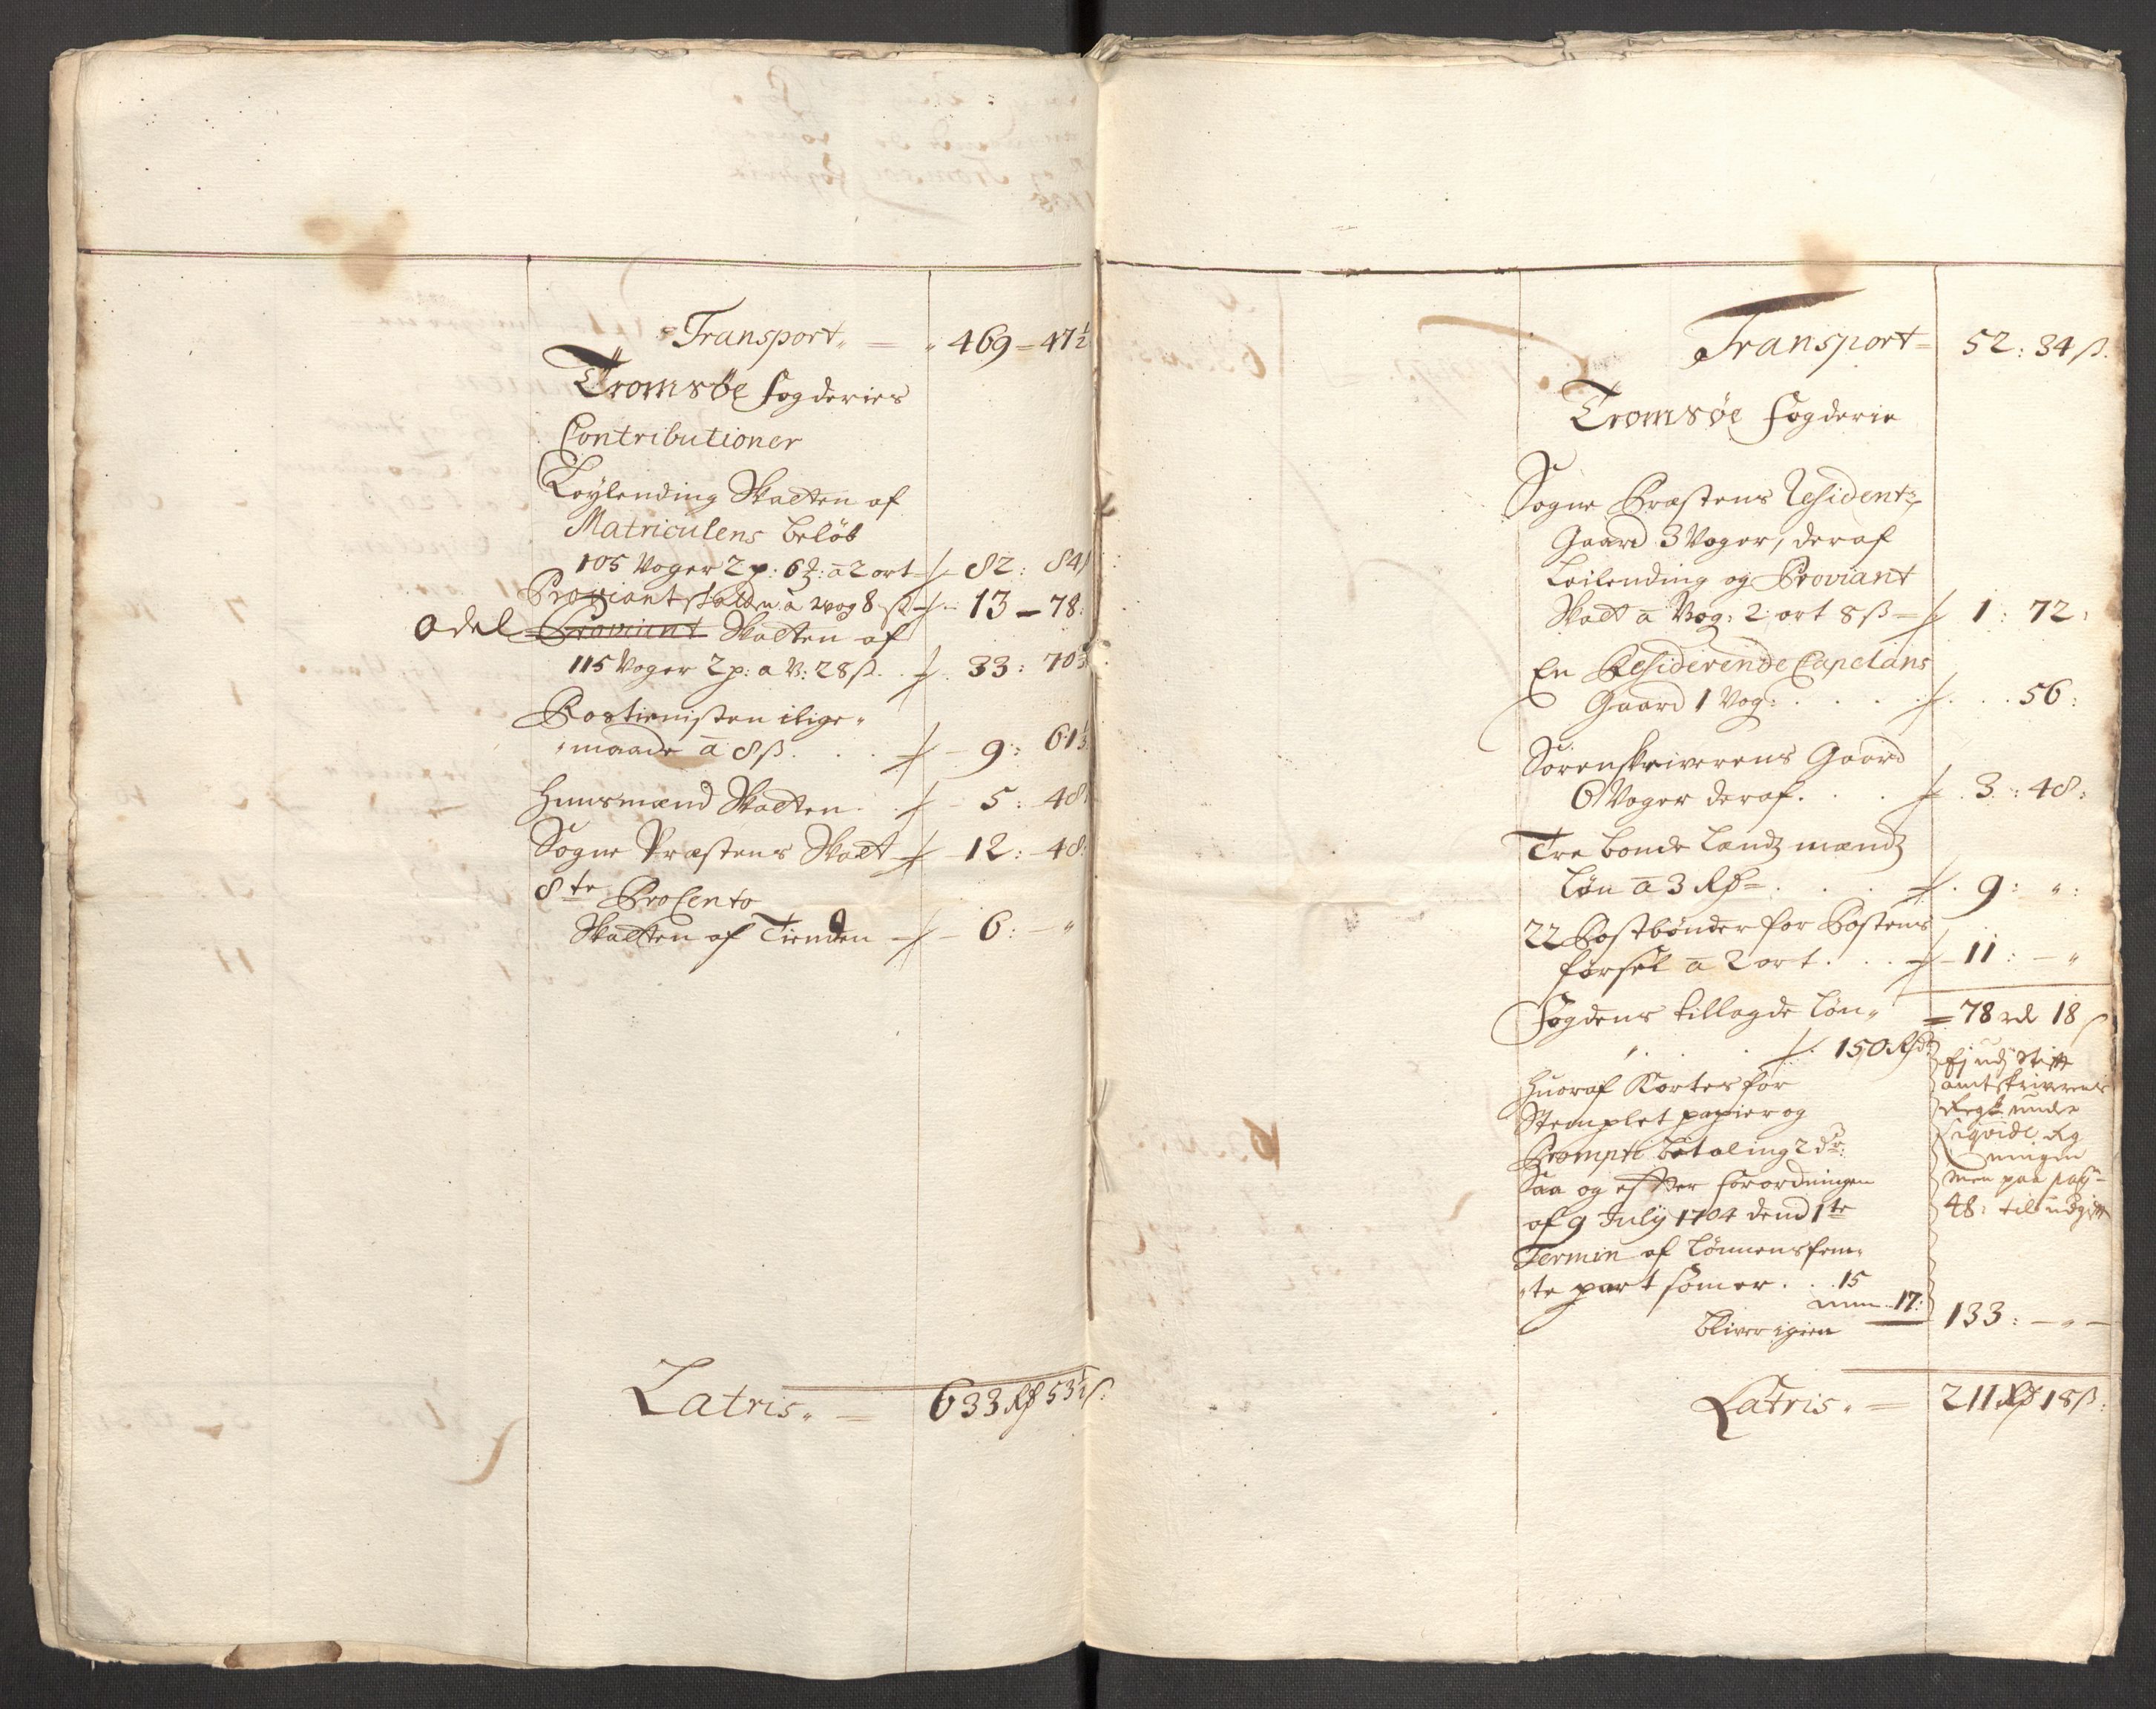 Transport„ = „ 469 = 47½
Tromsøe fogderies
Contributioner
Leylending Skatten af
Matriculens beløb
105 Voger 2 p: 6 : a 2 ort 82: 84
Proviantskatten a vog 8 ß 13 – 78:
Odel Proviant Skatten af
115 Voger 2 p: a V: 28 ß. 33: 70
Rostienisten i lige„
„maade a 8 ß. . . 9: 61
Huusmænd Skatten. . 5: 48
Sogne Præstens Skatt 12: 48:
8te ProCento
Skatten af Tienden 6: – „
Latris„ = 633 Rd 53½ ß:
Transport = 52: 34 ß.
Tromsøe fogderie
Sogne Præstens Residentz
Gaard 3 Voger, deraf
Leilending og Proviant
Skatt a Vog: 2 ort 8 ß = 1: 72:
En Residerende Capelans
Gaard 1 Vog: . . . . 56:
Sorenskriverens Gaard
6 Voger deraf. . . 3: 48:
Tre bonde Lendz mændz
Løn a 3 Rd = . . . 9: „:
22 Postbønder for Postens
førsel a 2 ort . . . 11: – „
Fogdens tillagde Løn„ = 78 rd 18 ß
„ . . . 150 Rdr
Huoraf Kortes for
Stemplet papier og
Prompte betaling 2 dr:
Saa og efter forordningen
af 9 July 1704 dend 1te
Termin af Lønnens fem„
„te part som er . . 15
17:
bliver igien 133: – „ –
Ej udj Stift
amtskriverens
Regn: under
liqvide Reg
ningen
men paa pag
48: til udgift
Latris„ = 211 Rd 18 ß: